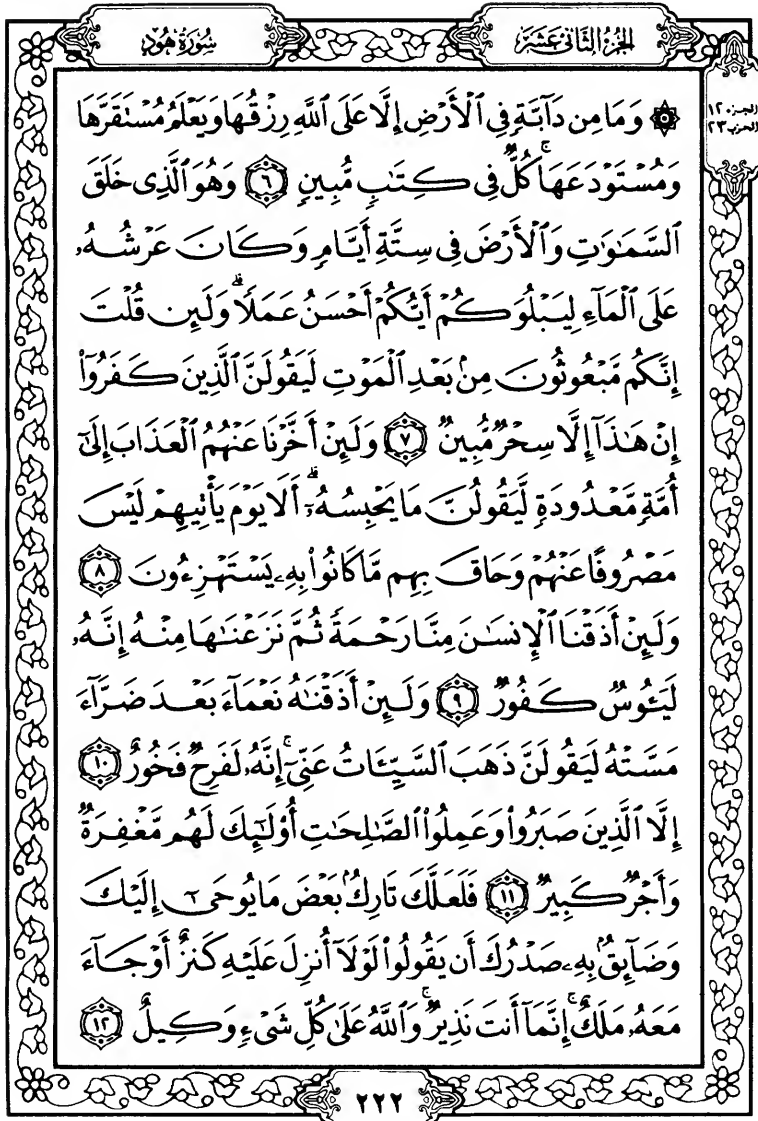 الجزء الثاني عشر
سورة هود
الجزء ١٢
الحزب ٢٣
۞ وَمَا مِن دَآبَّةٍ فِى ٱلْأَرْضِ إِلَّا عَلَى ٱللَّهِ رِزْقُهَا وَيَعْلَمُ مُسْتَقَرَّهَا
وَمُسْتَوْدَعَهَا ۚ كُلٌّ فِى كِتَـٰبٍ مُّبِينٍ ٦ وَهُوَ ٱلَّذِى خَلَقَ
ٱلسَّمَـٰوَٰتِ وَٱلْأَرْضَ فِى سِتَّةِ أَيَّامٍ وَكَانَ عَرْشُهُۥ
عَلَى ٱلْمَآءِ لِيَبْلُوَكُمْ أَيُّكُمْ أَحْسَنُ عَمَلًا ۗ وَلَئِن قُلْتَ
إِنَّكُم مَّبْعُوثُونَ مِنۢ بَعْدِ ٱلْمَوْتِ لَيَقُولَنَّ ٱلَّذِينَ كَفَرُوٓا۟
إِنْ هَـٰذَآ إِلَّا سِحْرٌ مُّبِينٌ ٧ وَلَئِنْ أَخَّرْنَا عَنْهُمُ ٱلْعَذَابَ إِلَىٰٓ
أُمَّةٍ مَّعْدُودَةٍ لَّيَقُولُنَّ مَا يَحْبِسُهُۥٓ ۗ أَلَا يَوْمَ يَأْتِيهِمْ لَيْسَ
مَصْرُوفًا عَنْهُمْ وَحَاقَ بِهِم مَّا كَانُوا۟ بِهِۦ يَسْتَهْزِءُونَ ٨
وَلَئِنْ أَذَقْنَا ٱلْإِنسَـٰنَ مِنَّا رَحْمَةً ثُمَّ نَزَعْنَـٰهَا مِنْهُ إِنَّهُۥ
لَيَـُٔوسٌ كَفُورٌ ٩ وَلَئِنْ أَذَقْنَـٰهُ نَعْمَآءَ بَعْدَ ضَرَّآءَ
مَسَّتْهُ لَيَقُولَنَّ ذَهَبَ ٱلسَّيِّـَٔاتُ عَنِّىٓ ۚ إِنَّهُۥ لَفَرِحٌ فَخُورٌ ١٠
إِلَّا ٱلَّذِينَ صَبَرُوا۟ وَعَمِلُوا۟ ٱلصَّـٰلِحَـٰتِ أُو۟لَـٰٓئِكَ لَهُم مَّغْفِرَةٌ
وَأَجْرٌ كَبِيرٌ ١١ فَلَعَلَّكَ تَارِكٌۢ بَعْضَ مَا يُوحَىٰٓ إِلَيْكَ
وَضَآئِقٌۢ بِهِۦ صَدْرُكَ أَن يَقُولُوا۟ لَوْلَآ أُنزِلَ عَلَيْهِ كَنزٌ أَوْ جَآءَ
مَعَهُۥ مَلَكٌ ۚ إِنَّمَآ أَنتَ نَذِيرٌ ۚ وَٱللَّهُ عَلَىٰ كُلِّ شَىْءٍ وَكِيلٌ ١٢
٢٢٢